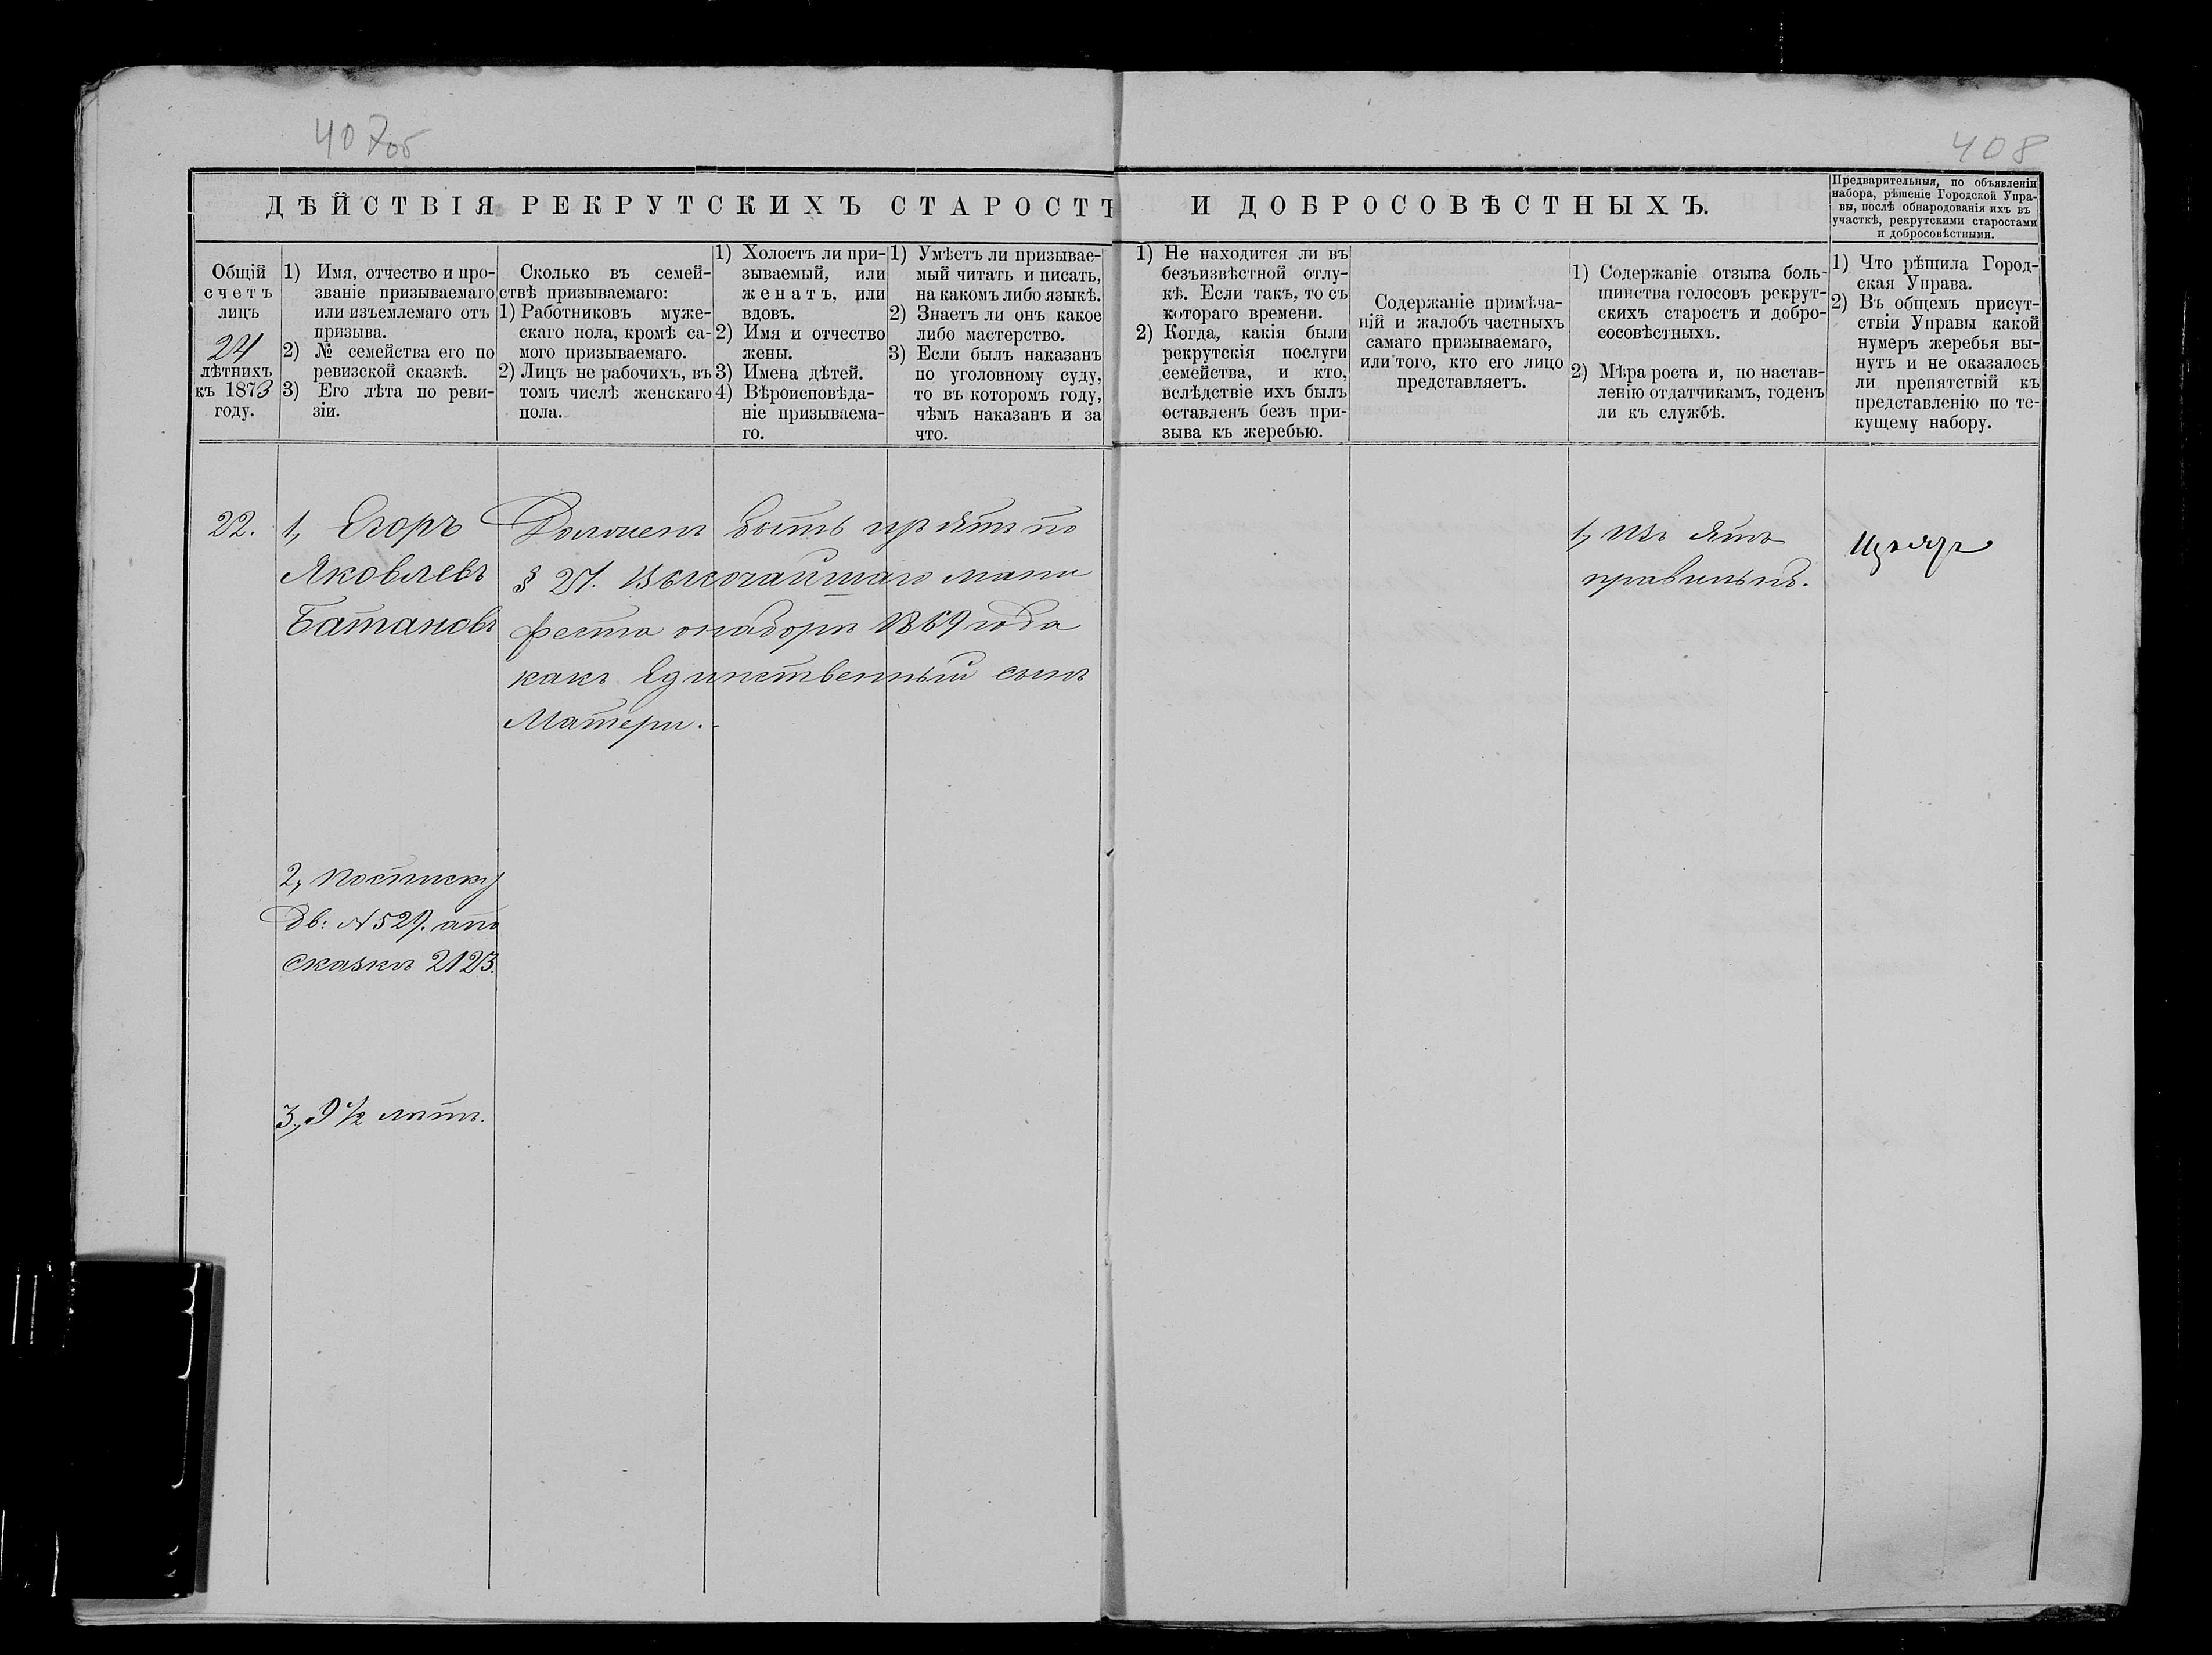 407об
408
ДѢЙСТВІЯ РЕКРУТСКИХЪ СТАРОСТЪ И ДОБРОСОВѢСТНЫХЪ.
Предварительныя, по объявленіи
набора, рѣшеніе Городской Упра-
вы, послѣ обнародованія ихъ въ
участкѣ, рекрутскими старостами
и добросовѣстными.
Общій
счетъ
лицъ
24
лѣтнихъ
къ 1873
году.
1) Имя, отчество и про-
званіе призываемаго
или изъемлемаго отъ
призыва.
2) № семейства его по
ревизской сказкѣ.
3) Его лѣта по реви-
зіи.
Сколько въ семей-
ствѣ призываемаго:
1) Работниковъ муже-
скаго пола, кромѣ са-
мого призываемаго.
2) Лицъ не рабочихъ, въ
томъ числѣ женскаго
пола.
1) Холостъ ли при-
зываемый, или
женатъ, или
вдовъ.
2) Имя и отчество
жены.
3) Имена дѣтей.
4) Вѣроисповѣда-
ніе призываема-
го.
1) Умѣетъ ли призывае-
мый читать и писать,
на какомъ либо языкѣ.
2) Знаетъ ли онъ какое
либо мастерство.
3) Если былъ наказанъ
по уголовному суду,
то въ которомъ году,
чѣмъ наказанъ и за
что.
1) Не находится ли въ
безъизвѣстной отлу-
кѣ. Если такъ, то съ
котораго времени.
2) Когда, какія были
рекрутскія послуги
семейства, и кто,
вслѣдствіе ихъ былъ
оставленъ безъ при-
зыва къ жеребью.
Содержаніе примѣча-
ній и жалобъ частныхъ
самаго призываемаго,
или того, кто его лицо
представляетъ.
1) Содержаніе отзыва боль-
шинства голосовъ рекрут-
скихъ старостъ и добро-
сосовѣстныхъ.
2) Мѣра роста и, по настав-
ленію отдатчикамъ, годенъ
ли къ службѣ.
1) Что рѣшила Город-
ская Управа.
2) Въ общемъ присут-
ствіи Управы какой
нумеръ жеребья вы-
нутъ и не оказалось
ли препятствій къ
представленію по те-
кущему набору.
22.
1, Егоръ
Яковлевъ
Батановъ
2, посписку
дв: №529. апо
сказкѣ 2123.
3, 9½ лѣтъ.
быть по
§ 27. Высочайшаго мани
феста онаборѣ 1869 года
какъ Единственный сынъ
Матери.
1, Изъятъ
правильнѣ.